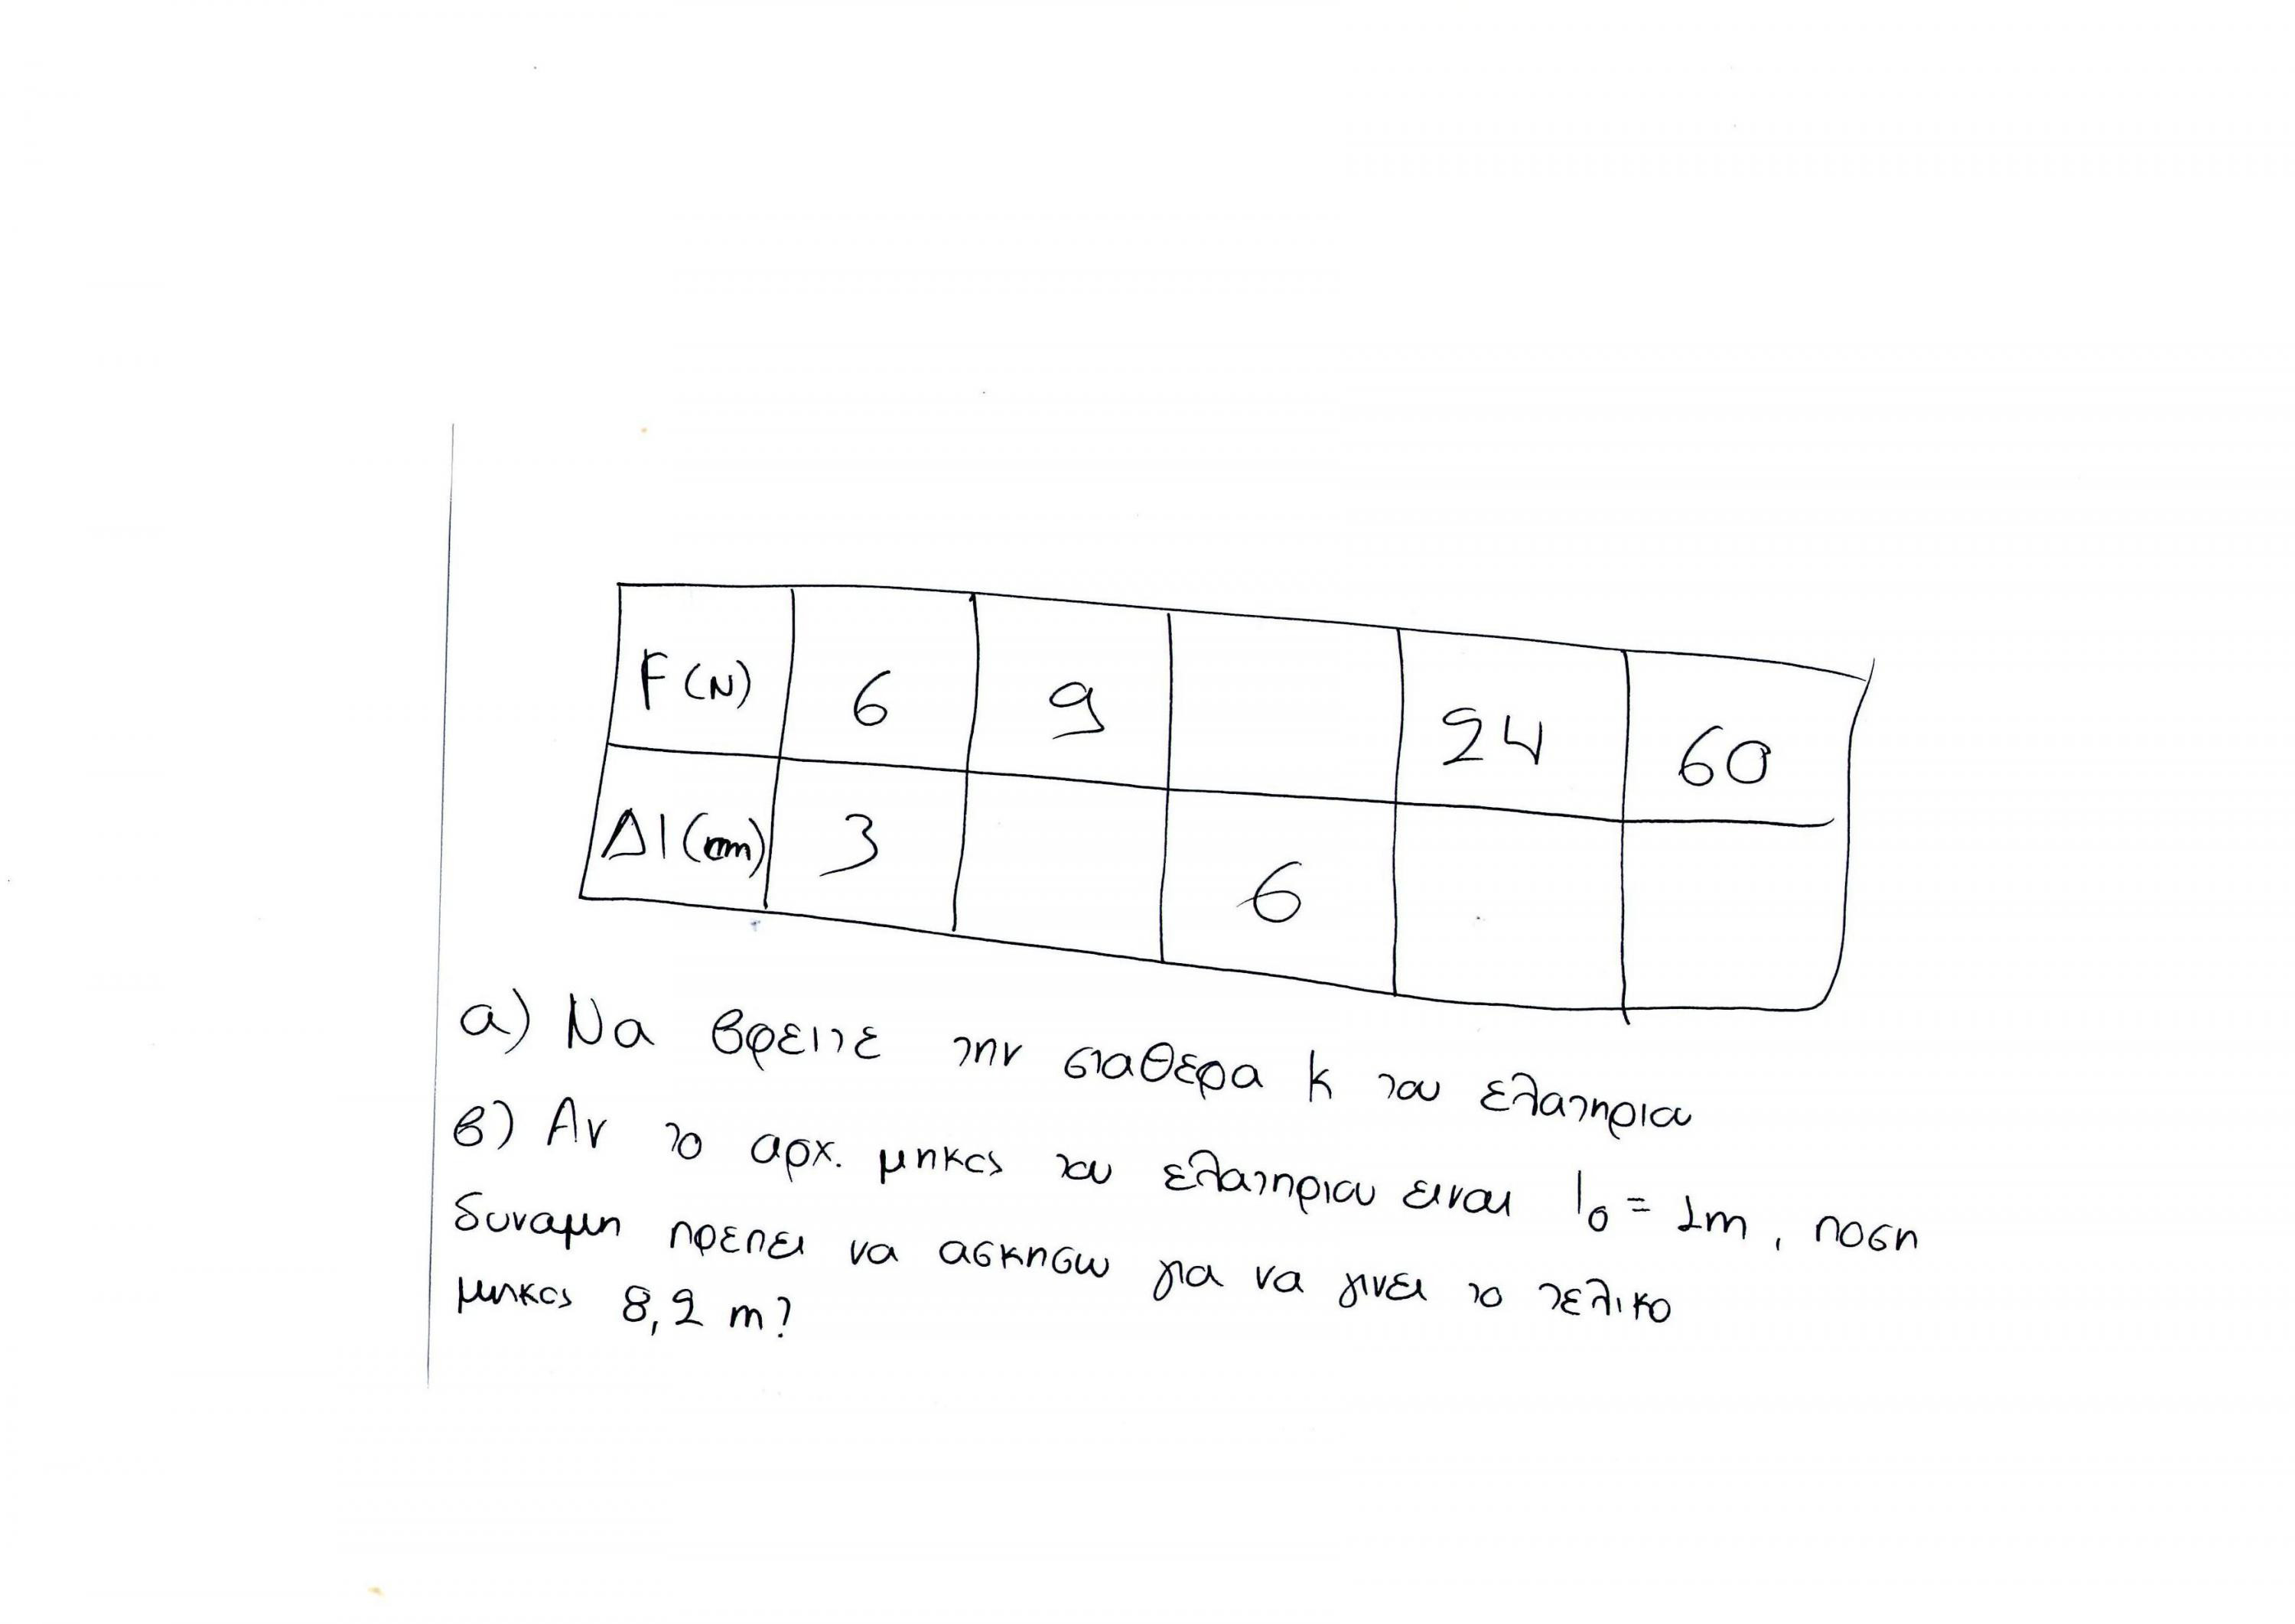 F (N) 6 9 24 60
Δl (cm) 3 6
α) Να βρειτε την σταθερα k του ελατηριου
β) Αν το αρχ. μηκος του ελατηριου ειναι l₀ = 1m, ποση
δυναμη πρεπει να ασκησω για να γινει το τελικο
μηκος 8,2 m?